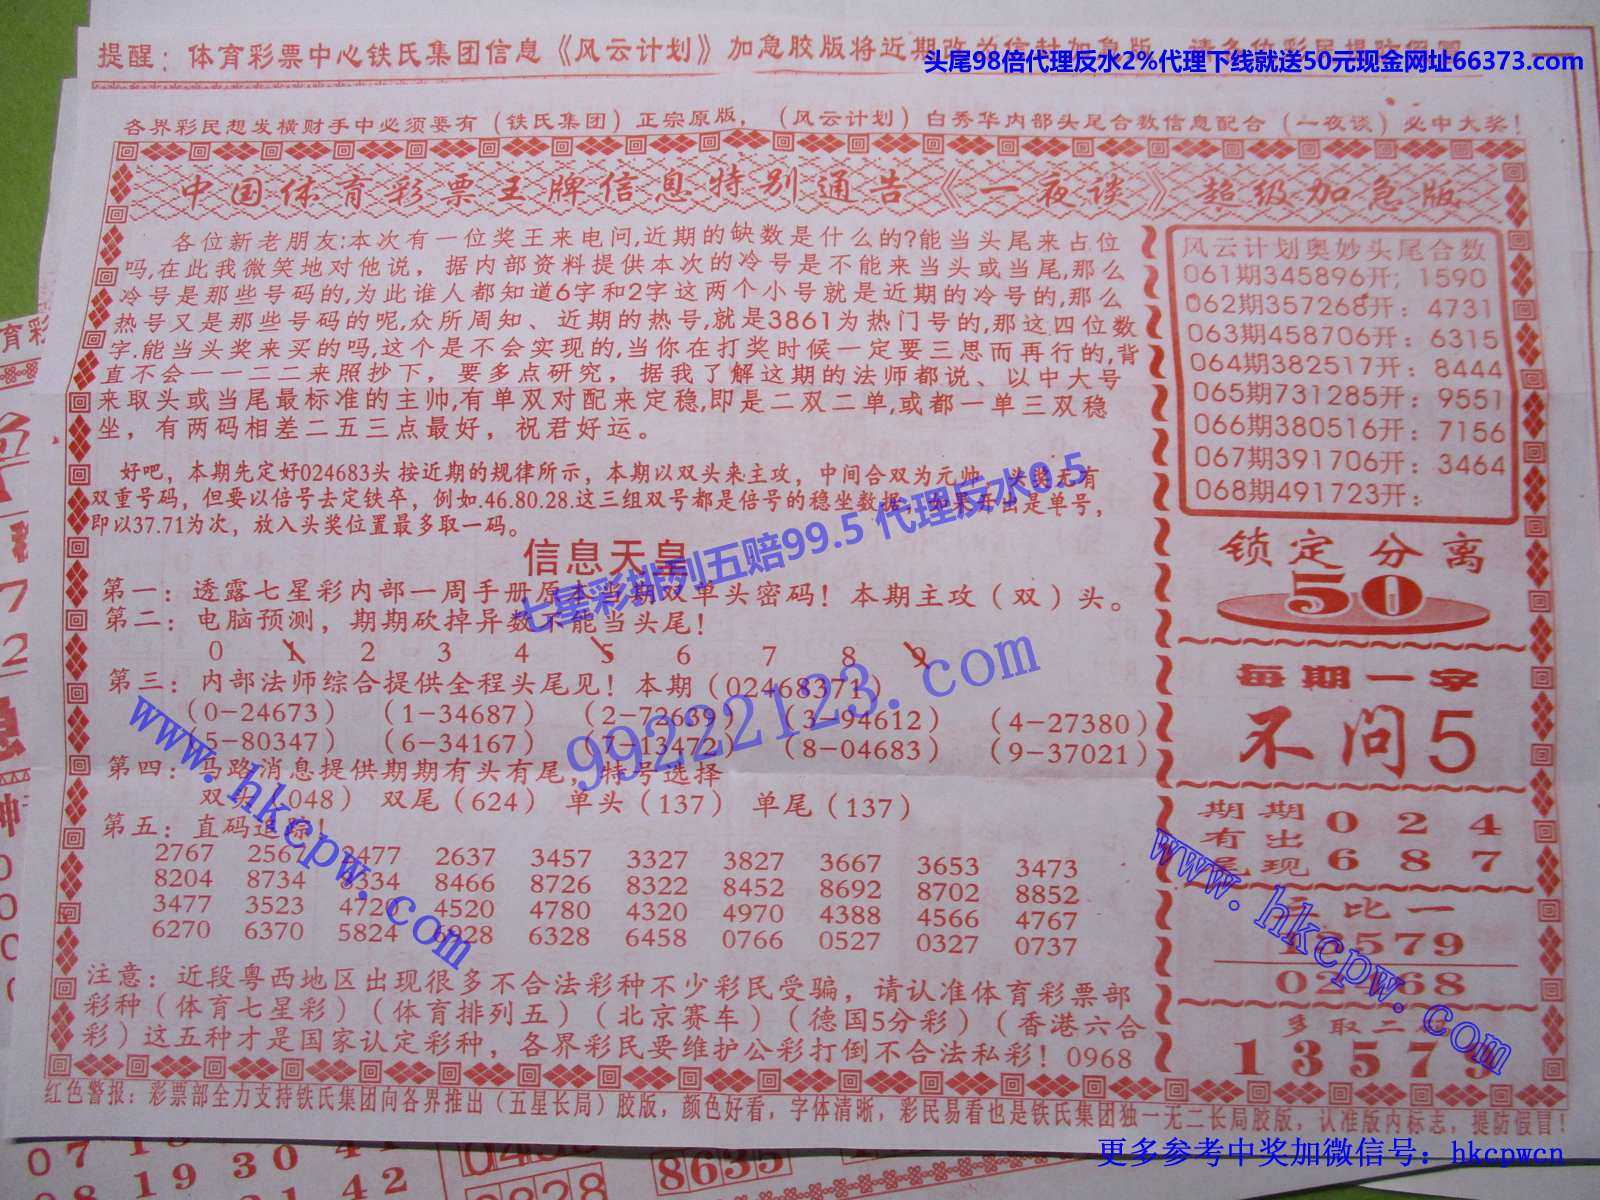 提醒：体育彩票中心铁氏集团信息《风云计划》加急胶版将近期改为信封加急版
头尾98倍代理反水2%代理下线就送50元现金网址66373.com
各界彩民想发横财手中必须要有（铁氏集团）正宗原版，（风云计划）白秀华内部头尾合数信息配合（一夜谈）必中大奖！
中国体育彩票王牌信息特别通告《一夜谈》超级加急版
各位新老朋友:本次有一位奖王来电问,近期的缺数是什么的?能当头尾来占位
吗,在此我微笑地对他说，据内部资料提供本次的冷号是不能来当头或当尾,那么
冷号是那些号码的,为此谁人都知道6字和2字这两个小号就是近期的冷号的,那么
热号又是那些号码的呢,众所周知、近期的热号,就是3861为热门号的,那这四位数
字.能当头奖来买的吗,这个是不会实现的,当你在打奖时候一定要三思而再行的,背
直不会一一二二来照抄下，要多点研究，据我了解这期的法师都说、以中大号
来取头或当尾最标准的主帅,有单双对配来定稳,即是二双二单,或都一单三双稳
坐，有两码相差二五三点最好，祝君好运。
好吧，本期先定好024683头按近期的规律所示，本期以双头来主攻，中间合双为元帅，头奖无有
双重号码，但要以倍号去定铁卒，例如.46.80.28.这三组双号都是倍号的稳坐数据，如果开出是单号，
即以37.71为次，放入头奖位置最多取一码。
信息天皇
第一：透露七星彩内部一周手册原本当期双单头密码！本期主攻（双）头。
第二：电脑预测，期期砍掉异数不能当头尾！
0 1 2 3 4 5 6 7 8 9
第三：内部法师综合提供全程头尾见！本期（02468371）
（0-24673）（1-34687）（2-72639）（3-94612）（4-27380）
（5-80347）（6-34167）（7-13472）（8-04683）（9-37021）
第四：马路消息提供期期有头有尾，特号选择
双头（048） 双尾（624） 单头（137） 单尾（137）
第五：直码追踪！
2767 2567 2477 2637 3457 3327 3827 3667 3653 3473
8204 8734 8334 8466 8726 8322 8452 8692 8702 8852
3477 3523 4720 4520 4780 4320 4970 4388 4566 4767
6270 6370 5824 6928 6328 6458 0766 0527 0327 0737
注意：近段粤西地区出现很多不合法彩种不少彩民受骗，请认准体育彩票部
彩种（体育七星彩）（体育排列五）（北京赛车）（德国5分彩）（香港六合
彩）这五种才是国家认定彩种，各界彩民要维护公彩打倒不合法私彩！0968
风云计划奥妙头尾合数
061期345896开；1590
062期357268开：4731
063期458706开：6315
064期382517开：8444
065期731285开：9551
066期380516开：7156
067期391706开：3464
068期491723开：
锁定分离
50
每期一字
不问5
期期 0 2 4
有出
尾现 6 8 7
比一
13579
02468
多取二
13579
红色警报：彩票部全力支持铁氏集团向各界推出（五星长局）胶版，颜色好看，字体清晰，彩民易看也是铁氏集团独一无二长局胶版，认准版内标志，提防假冒！
七星彩排列五赔99.5 代理反水0.5
99222123.com
www.hkcpw.com
www.hkcpw.com
更多参考中奖加微信号：hkcpwcn
8635